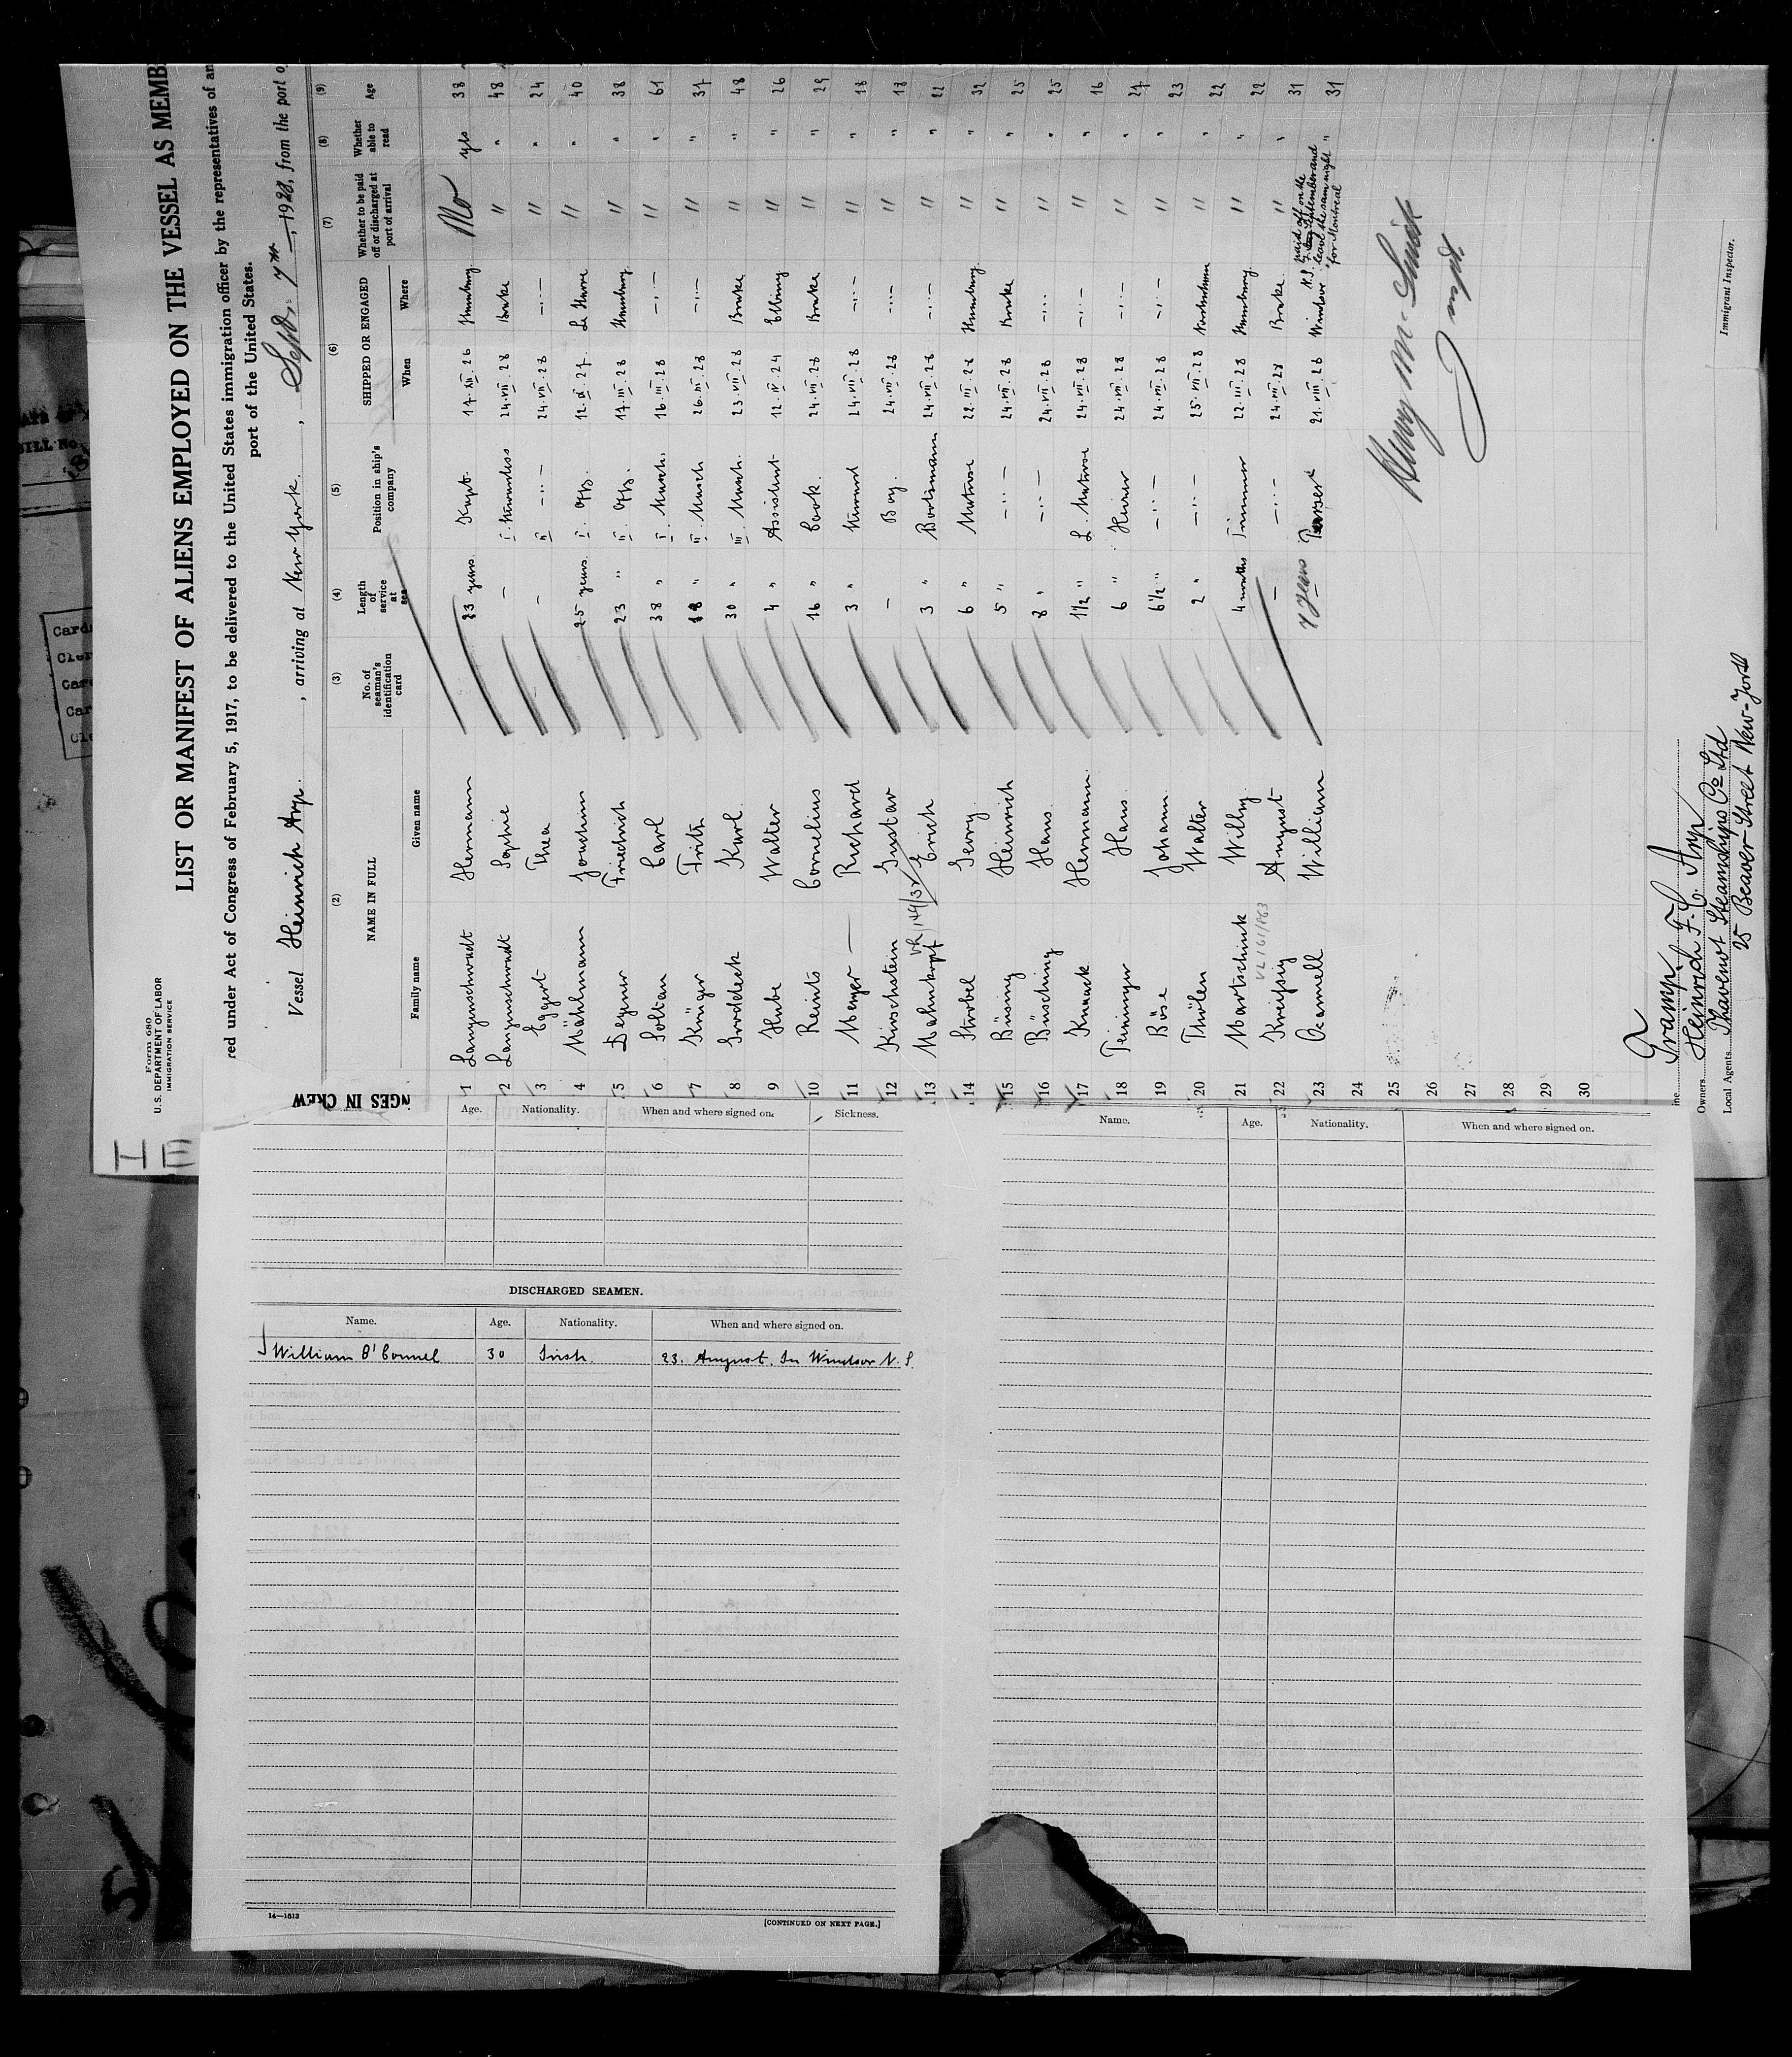 Form 680
U. S. DEPARTMENT OF LABOR
IMMIGRATION SERVICE
LIST OR MANIFEST OF ALIENS EMPLOYED ON THE VESSEL AS MEMB
red under Act of Congress of February 5, 1917, to be delivered to the United States immigration officer by the representatives of an
port of the United States.
Vessel Heinrich Arp. , arriving at New York. , Sept. 7th, 1928, from the port o
(2) (3) (4) (5) (6) (7) (8) (9)
NAME IN FULL No. of seaman's identification card Length of service at sea Position in ship's company SHIPPED OR ENGAGED Whether to be paid off or discharged at port of arrival Whether able to read Age
Family name Given name When Where
1 Langenschwadt Hermann 23 years Kapt. 17.XII.26 Hamburg No yes 38
2 Langenschwadt Sophie — I. Stewardess 24.VII.28 Brake " " 48
3 Eggert Thea — II —"— 24.VII.28 —"— " " 24
4 Mählmann Joachim 25 years I. Offz. 12.XI.27 Le Havre " " 40
5 Degner Friedrich 23 " II. Offz. 17.III.28 Hamburg " " 38
6 Soltau Carl 38 " I. Masch. 16.III.28 —"— " " 61
7 Krüger Fritz 18 " II. Masch 26.III.28 —"— " " 37
8 Groddeck Karl 30 " III. Masch. 23.VII.28 Brake " " 48
9 Hube Walter 4 " Assistent 12.IV.24 Elbing " " 26
10 Reints Cornelius 16 " Cook. 24.VII.28 Brake " " 29
11 Menger — Richard 3 " Steward 24.VII.28 —"— " " 18
12 Kirschstein Gustav — Boy. 24.VII.28 —"— " " 18
13 Mahnkopf Erich 3 " Bootsmann 24.VII.28 —"— " " 22
14 Strobel Georg 6 " Matrose 22.III.28 Hamburg " " 32
15 Büsing Heinrich 5 " —"— 24.VII.28 Brake " " 25
16 Büsching Hans 8 " —"— 24.VII.28 —"— " " 25
17 Knaack Hermann 1½ " L. Matrose 24.VII.28 —"— " " 16
18 Peininger Hans 6 " Heizer 24.VII.28 —"— " " 27
19 Böse Johann 6½ " —"— 24.VII.28 —"— " " 23
20 Thölen Walter 2 " —"— 25.VII.28 " " 22
21 Martschink Willy 4 months Trimmer 22.III.28 Hamburg " " 22
VL 161/963
22 August — —"— 24.VII.28 Brake " " 31
23 William 2 years 21.VIII.28 N.S. paid off on the September and leave the same night for Montreal " 31
24
25
26
27
28
29
30
Immigrant Inspector.
Tramp.
Owners Heinrich F.C. Arp
Local Agents Thavenot Steamships Co Ltd
25 Beaver Street New-York
NGES IN CREW
HE
Age. Nationality. When and where signed on. Sickness.
DISCHARGED SEAMEN.
Name. Age. Nationality. When and where signed on.
William O'Connel 30 Irish. 23. August. In Windsor N. S.
14—1513
[CONTINUED ON NEXT PAGE.]
Name. Age. Nationality. When and where signed on.